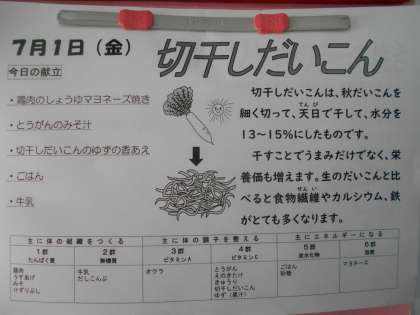 7月1日（金）
切干しだいこん
今日の献立
・鶏肉のしょうゆマヨネーズ焼き
・とうがんのみそ汁
・切干しだいこんのゆずの香あえ
・ごはん
・牛乳
切干しだいこんは、秋だいこんを
細く切って、天日で干して、水分を
てんぴ
13～15％にしたものです。
干すことでうまみだけでなく、栄
養価も増えます。生のだいこんと比
べると食物繊維やカルシウム、鉄
せんい
がとても多くなります。
主に体の組織をつくる
主に体の調子を整える
主にエネルギーになる
1群
たんぱく質
2群
無機質
3群
ビタミンA
4群
ビタミンC
5群
炭水化物
6群
脂質
鶏肉
うすあげ
みそ
けずりぶし
牛乳
だしこんぶ
オクラ
とうがん
えのきたけ
きゅうり
切干しだいこん
ゆず（果汁）
ごはん
砂糖
マヨネーズ